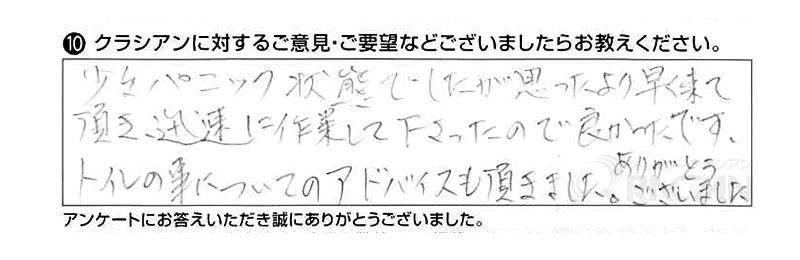 ⑩ クラシアンに対するご意見・ご要望などございましたらお教えください。
少々パニック状態でしたが思ったより早く来て
頂き、迅速に作業して下さったので良かったです、
トイレの事についてのアドバイスも頂きました。ありがとう
ございました
アンケートにお答えいただき誠にありがとうございました。